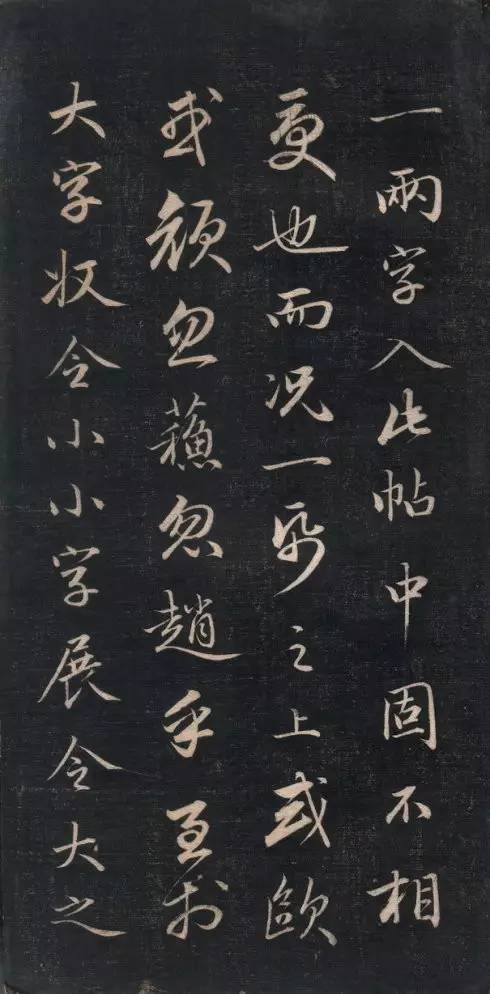 一兩字入此帖中固不相
更也而况一帋之上或歐
或顏忽蘇忽趙乎至於
大字収令小小字展令大之